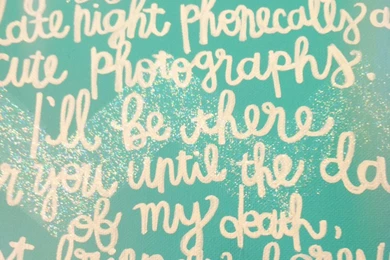 late night phonecalls a
cute photographs.
I'll be there
r you until the da
of my death,
st friends